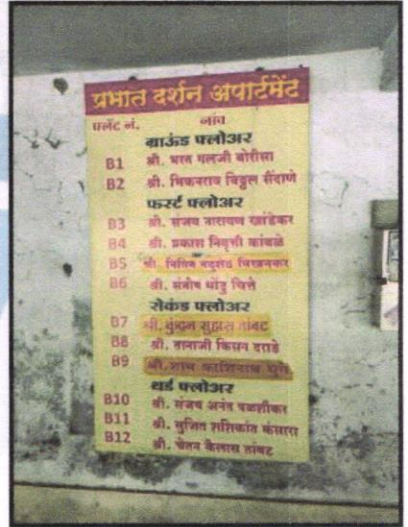 प्रभात दर्शन अपार्टमेंट
फ्लॅट नं. नांव
ग्राऊंड फ्लोअर
B1 श्री. भरत गलजी बोरीसा
B2 श्री. भिकनराव विठ्ठल सैंदाणे
फर्स्ट फ्लोअर
B3 श्री. संजय नारायण खांडेकर
B4 श्री. प्रकाश निवृत्ती कांबळे
B5 श्री. नितिन
B6 श्री. संतोष धोंडु चित्ते
सेकंड फ्लोअर
B7 श्री. कुंदन सुहास तांबट
B8 श्री. तानाजी किसन दराडे
B9 श्री. शाम काशिनाथ
थर्ड फ्लोअर
B10 श्री. संजय अनंत पळशीकर
B11 श्री. सुजित शशिकांत कंसारा
B12 श्री. चेतन कैलास तांबट